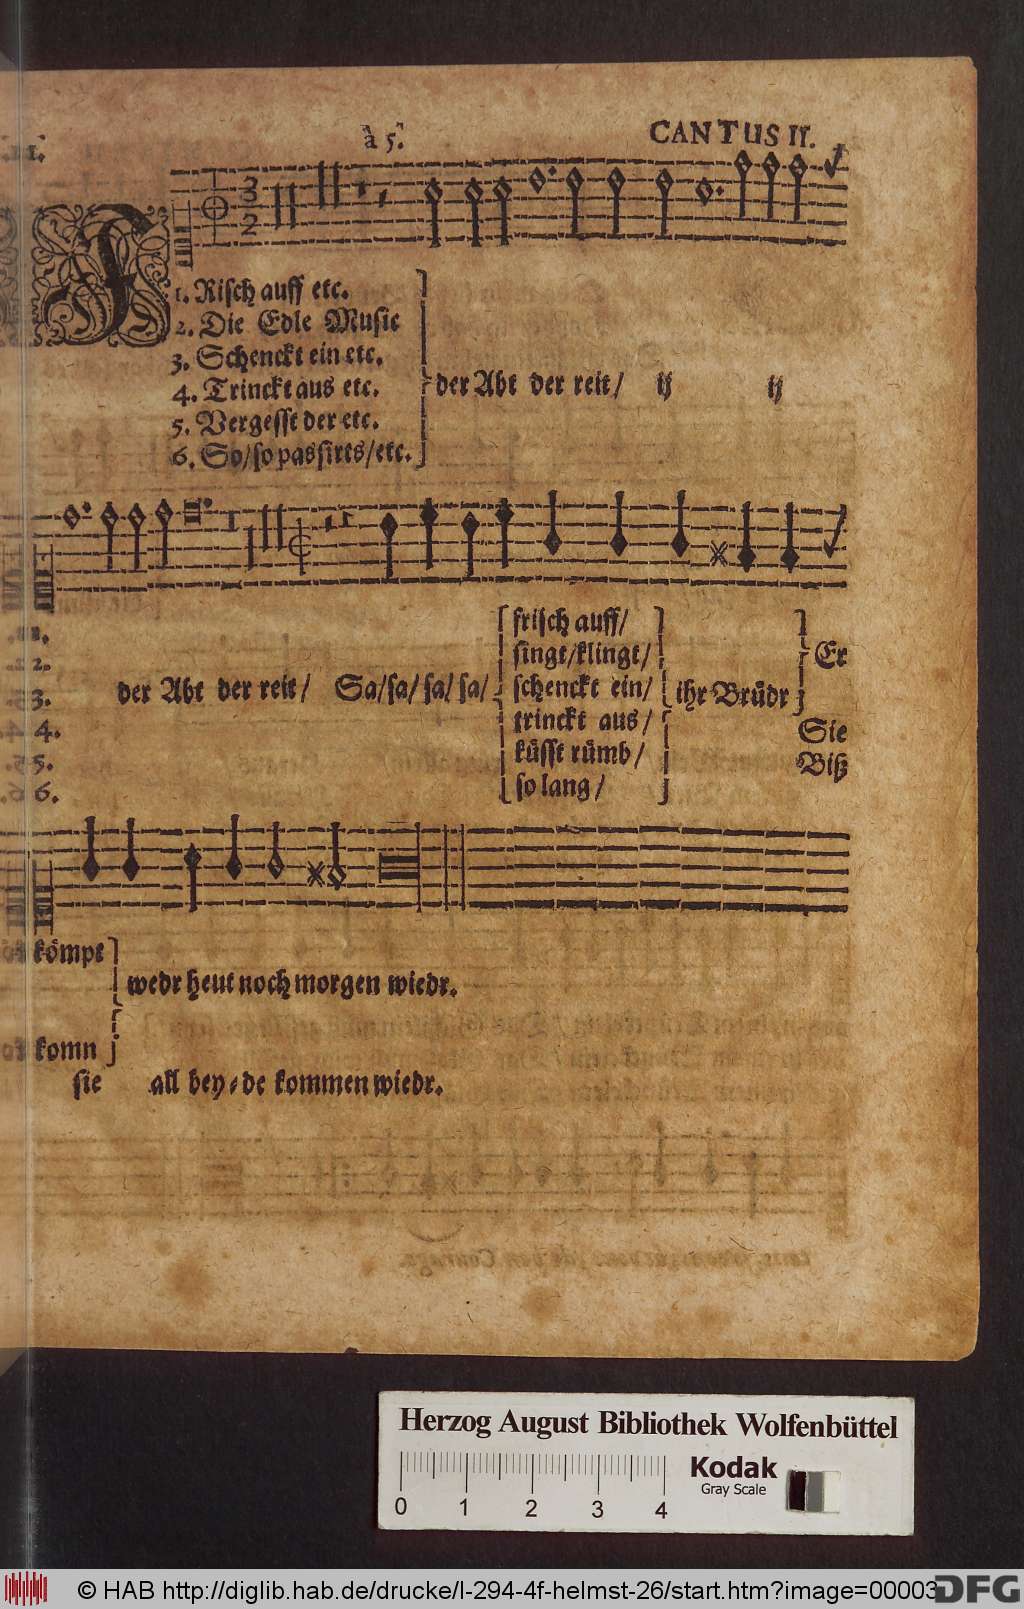 à 5.
CANTUS II.
F
1. Risch auff etc.
2. Die Edle Music
3. Schenckt ein etc.
4. Trinckt aus etc.
5. Vergesst der etc.
6. So/ so passirts/ etc.
der Abt der reit/ ij ij
1.
2.
3.
4.
5.
6.
der Abt der reit/ Sa/ sa/ sa/ sa/
frisch auff/
singt/ klingt/
schenckt ein/
trinckt aus/
küsst rümb/
so lang/
ihr Brüdr
Er
Sie
Biß
kömpt
wedr heut noch morgen wiedr.
komn
sie all bey-de kommen wiedr.
Herzog August Bibliothek Wolfenbüttel
0 1 2 3 4
Kodak
Gray Scale
© HAB http://diglib.hab.de/drucke/l-294-4f-helmst-26/start.htm?image=00003
DFG